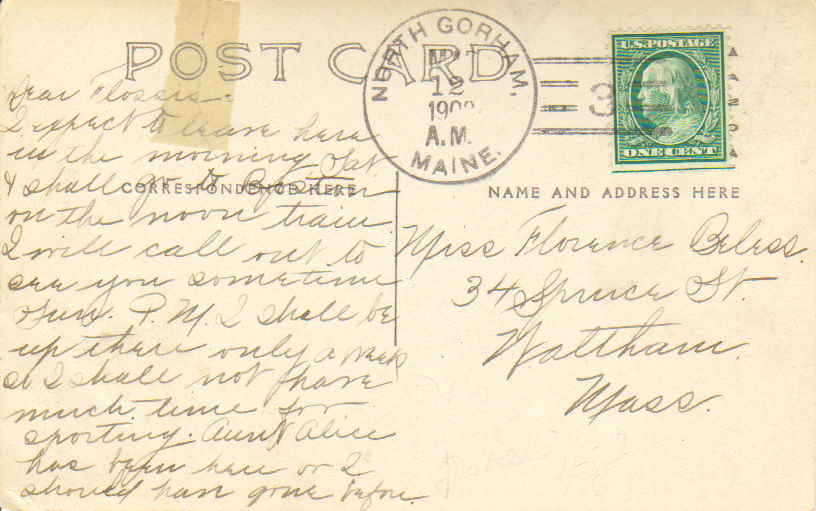 POST CARD
NORTH GORHAM,
12
190
A.M.
MAINE.
3
U.S. POSTAGE
ONE CENT
CORRESPONDENCE HERE
NAME AND ADDRESS HERE
Dear Flossie-
I expect to leave here
in the morning Sat
& shall go to Boston
on the noon train
I will call out to
see you sometime
Sun. P.M. I shall be
up there only a week
so I shall not have
much time for
sporting. Aunt Alice
has been here or I
should have gone before.
Miss Florence
34 Spruce St.
Waltham
Mass.